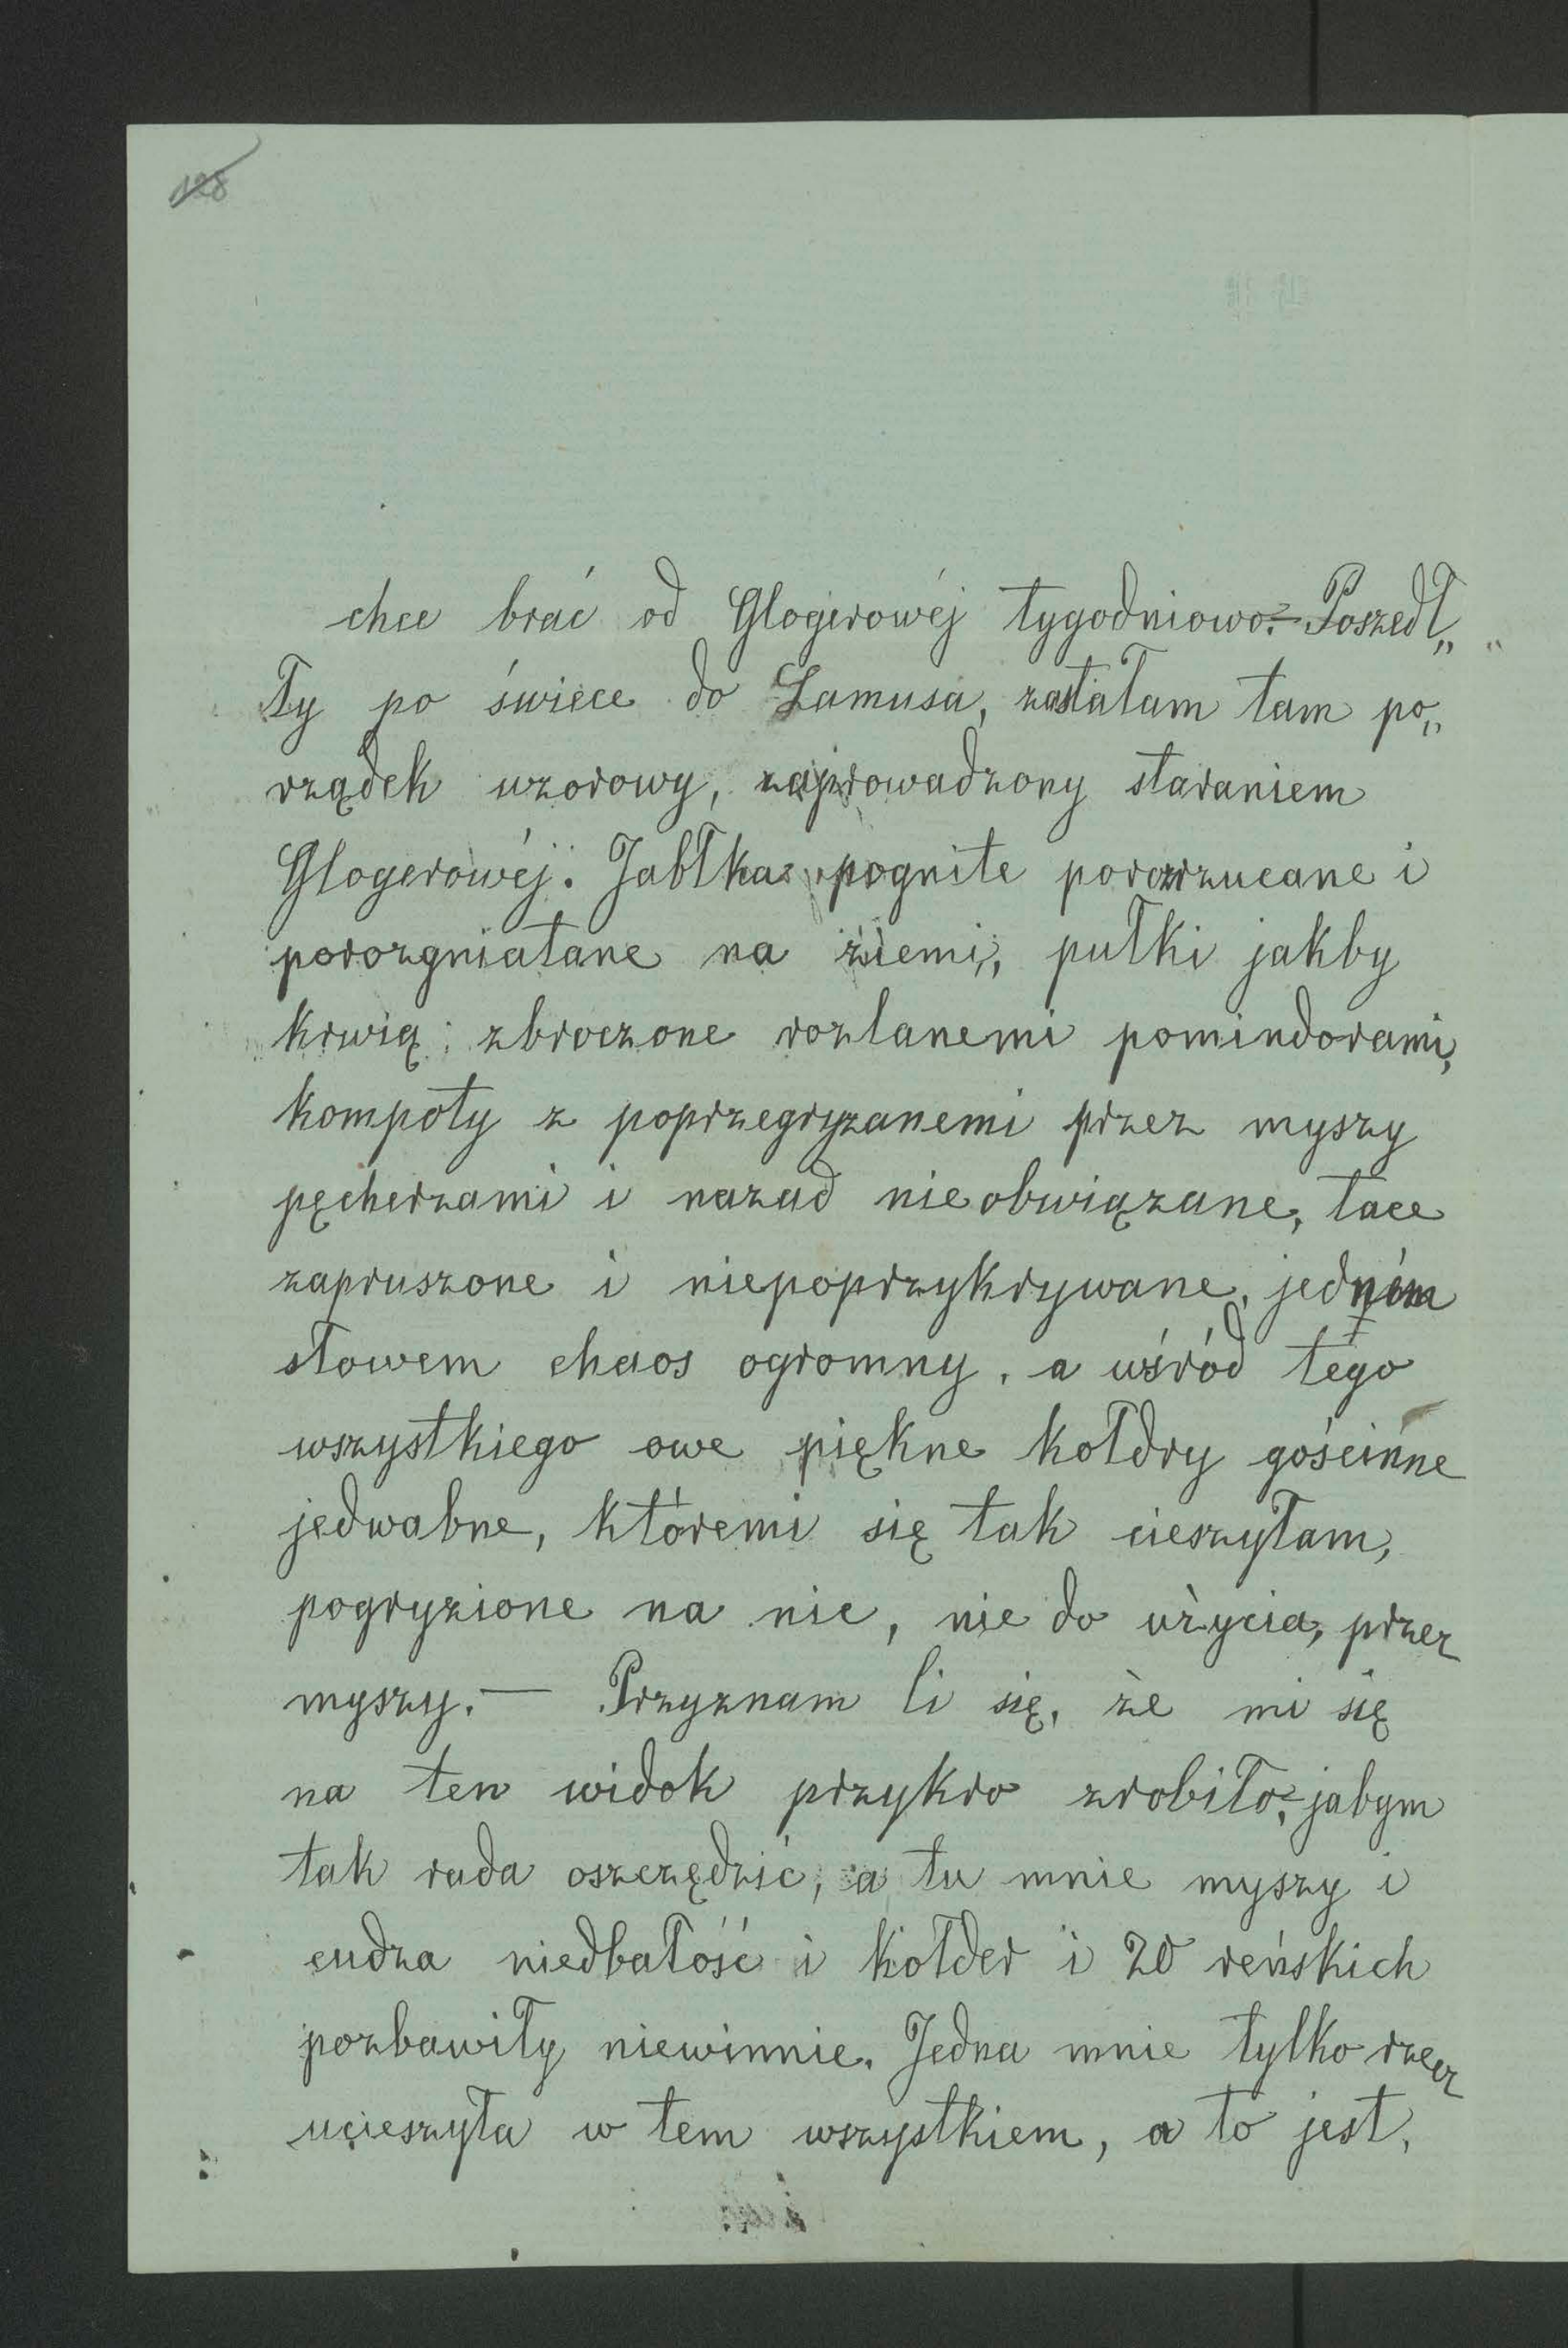 128
chce brać od Glogerowéj tygodniowo.— Poszedł„
Ty po świece do Lamusa, zastałam tam po„
rządek wzorowy, zaprowadzony staraniem
Glogerowéj. Jabłka pogniłe porozrzucane i
porozgniatane na ziemi, pułki jakby
krwią zbroczone rozlanemi pomindorami,
kompoty z poprzegryzanemi przez myszy
pęcherzami i nazad nieobwiązane, tace
zapruszone i niepoprzykrywane, jedném
słowem chaos ogromny, a wśród tego
wszystkiego owe piękne kołdry gościnne
jedwabne, któremi się tak cieszyłam,
pogryzione na nic, nie do użycia, przez
myszy.— Przyznam Ci się, że mi się
na ten widok przykro zrobiło, jabym
tak rada oszczędzić, a tu mnie myszy i
cudza niedbałość i kołder i 20 reńskich
pozbawiły niewinnie. Jedna mnie tylko rzecz
ucieszyła w tem wszystkiem, a to jest,